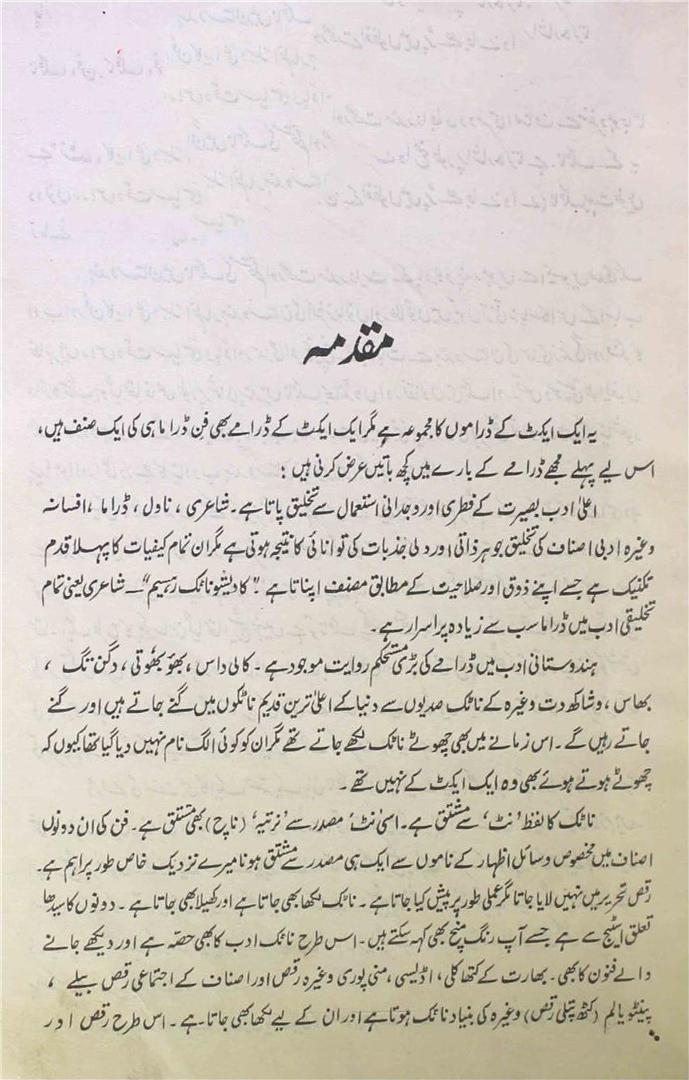 مقدمہ
یہ ایک ایکٹ کے ڈراموں کا مجموعہ ہے مگر ایک ایکٹ کے ڈرامے بھی فن ڈراما ہی کی ایک صنف ہیں،
اس لیے پہلے مجھے ڈرامے کے بارے میں کچھ باتیں عرض کرنی ہیں :
اعلیٰ ادب بصیرت کے فطری اور وجدانی استعمال سے تخلیق پاتا ہے۔ شاعری، ناول، ڈراما، افسانہ
وغیرہ ادبی اصناف کی تخلیق جوہر ذاتی اور دلی جذبات کی توانائی کا نتیجہ ہوتی ہے مگر ان تمام کیفیات کا پہلا قدم
تکنیک ہے جسے اپنے ذوق اور صلاحیت کے مطابق مصنف اپناتا ہے۔ "کادیشو ناٹک رہسیم" ۔ شاعری یعنی تمام
تخلیقی ادب میں ڈراما سب سے زیادہ پراسرار ہے۔
ہندوستانی ادب میں ڈرامے کی بڑی مستحکم روایت موجود ہے۔ کالی داس، بھؤ بھُوتی، دگن نگ،
بھاس، وشاکھ دت وغیرہ کے ناٹک صدیوں سے دنیا کے اعلیٰ ترین قدیم ناٹکوں میں گنے جاتے ہیں اور گنے
جاتے رہیں گے۔ اس زمانے میں بھی چھوٹے ناٹک لکھے جاتے تھے مگر ان کو کوئی الگ نام نہیں دیا گیا تھا کیوں کہ
چھوٹے ہوتے ہوئے بھی وہ ایک ایکٹ کے نہیں تھے۔
ناٹک کا لفظ 'نٹ' سے مشتق ہے۔ اسی 'نٹ' مصدر سے 'نرتیہ' (ناچ) بھی مشتق ہے۔ فن کی ان دونوں
اصناف میں مخصوص وسائل اظہار کے ناموں سے ایک ہی مصدر سے مشتق ہونا میرے نزدیک خاص طور پر اہم ہے۔
رقص تحریر میں نہیں لایا جاتا مگر عملی طور پر پیش کیا جاتا ہے۔ ناٹک لکھا بھی جاتا ہے اور کھیلا بھی جاتا ہے۔ دونوں کا سیدھا
تعلق اسٹیج سے ہے جسے آپ رنگ منچ بھی کہہ سکتے ہیں۔ اس طرح ناٹک ادب کا بھی حصہ ہے اور دیکھے جانے
والے فنون کا بھی۔ بھارت کے کتھا کلی، اڈیسی، منی پوری وغیرہ رقص اور اصناف کے اجتماعی رقص بیلے،
پینٹویالم (کٹھ پتلی رقص) وغیرہ کی بنیاد ناٹک ہوتا ہے اور ان کے لیے لکھا بھی جاتا ہے۔ اس طرح رقص اور